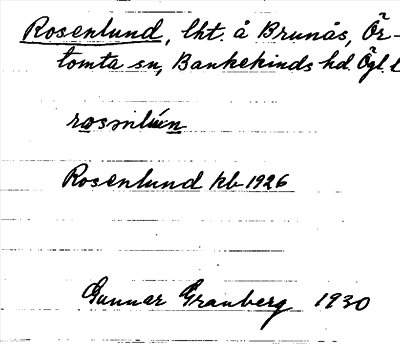 Rosenlund, lht. å Brunås, Ör-
tomta sn, Bankekinds hd. Ögl. l
Rosenlund kb 1926
Gunnar Granberg 1930